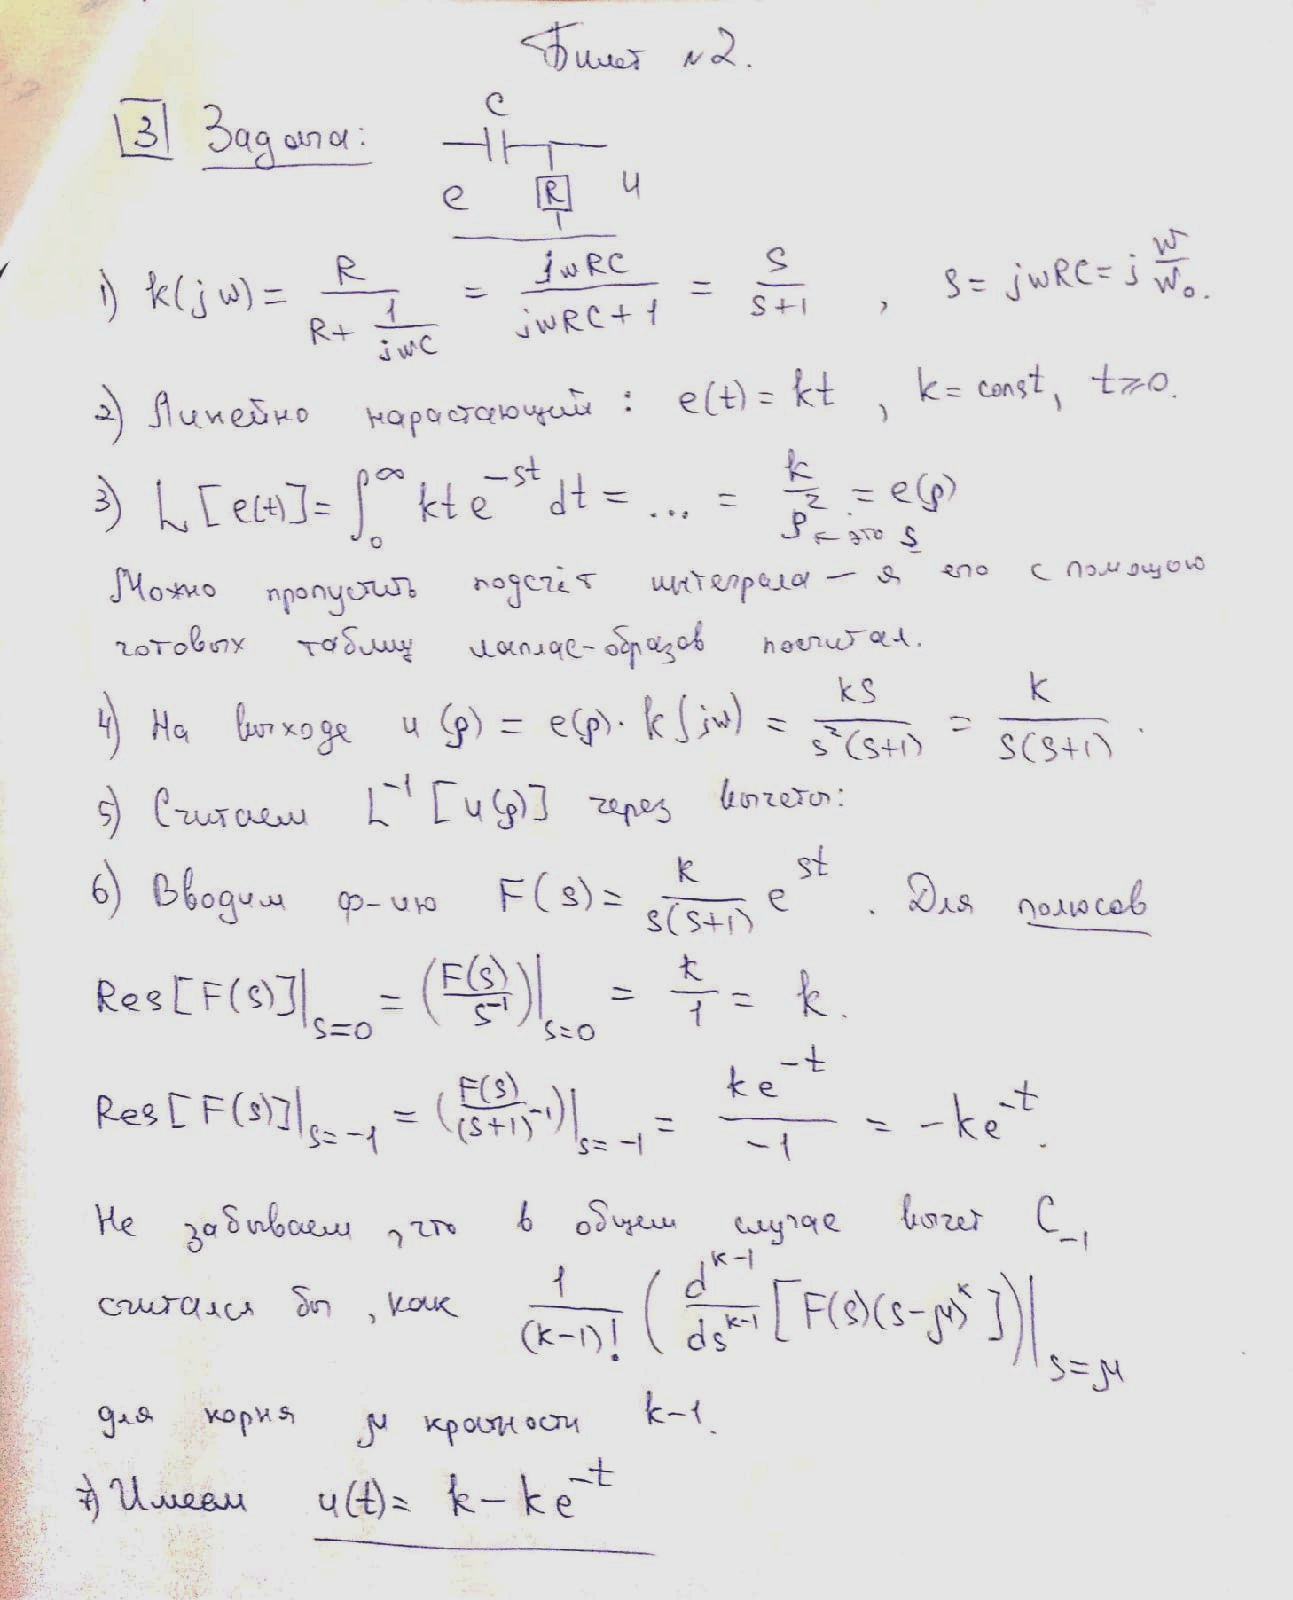 Билет №2.
3 Задача:
C
e R u
1) k(jw) = R / (R + 1/(jwC)) = jwRC / (jwRC + 1) = s / (s+1) , s = jwRC = j w/w₀.
2) Линейно нарастающий : e(t) = kt , k = const, t ⩾ 0.
3) L[e(t)] = ∫₀^∞ kt e^(-st) dt = ... = k/p² = e(p)
← это s
Можно пропустить подсчёт интеграла – я его с помощью
готовых таблиц лаплас-образов посчитал.
4) На выходе u(p) = e(p) · k(jw) = ks / (s²(s+1)) = k / (s(s+1)) .
5) Считаем L⁻¹[u(p)] через вычеты:
6) Вводим ф-ию F(s) = k / (s(s+1)) e^(st) . Для полюсов
Res[F(s)]|s=0 = (F(s) / s⁻¹)|s=0 = k/1 = k.
Res[F(s)]|s=-1 = (F(s) / (s+1)⁻¹)|s=-1 = ke^(-t) / -1 = -ke^(-t).
Не забываем, что в общем случае вычет C₋₁
считался бы, как 1/(k-1)! (d^(k-1)/ds^(k-1) [F(s)(s-μ)^k])|s=μ
для корня μ кратности k-1.
7) Имеем u(t) = k - ke^(-t)